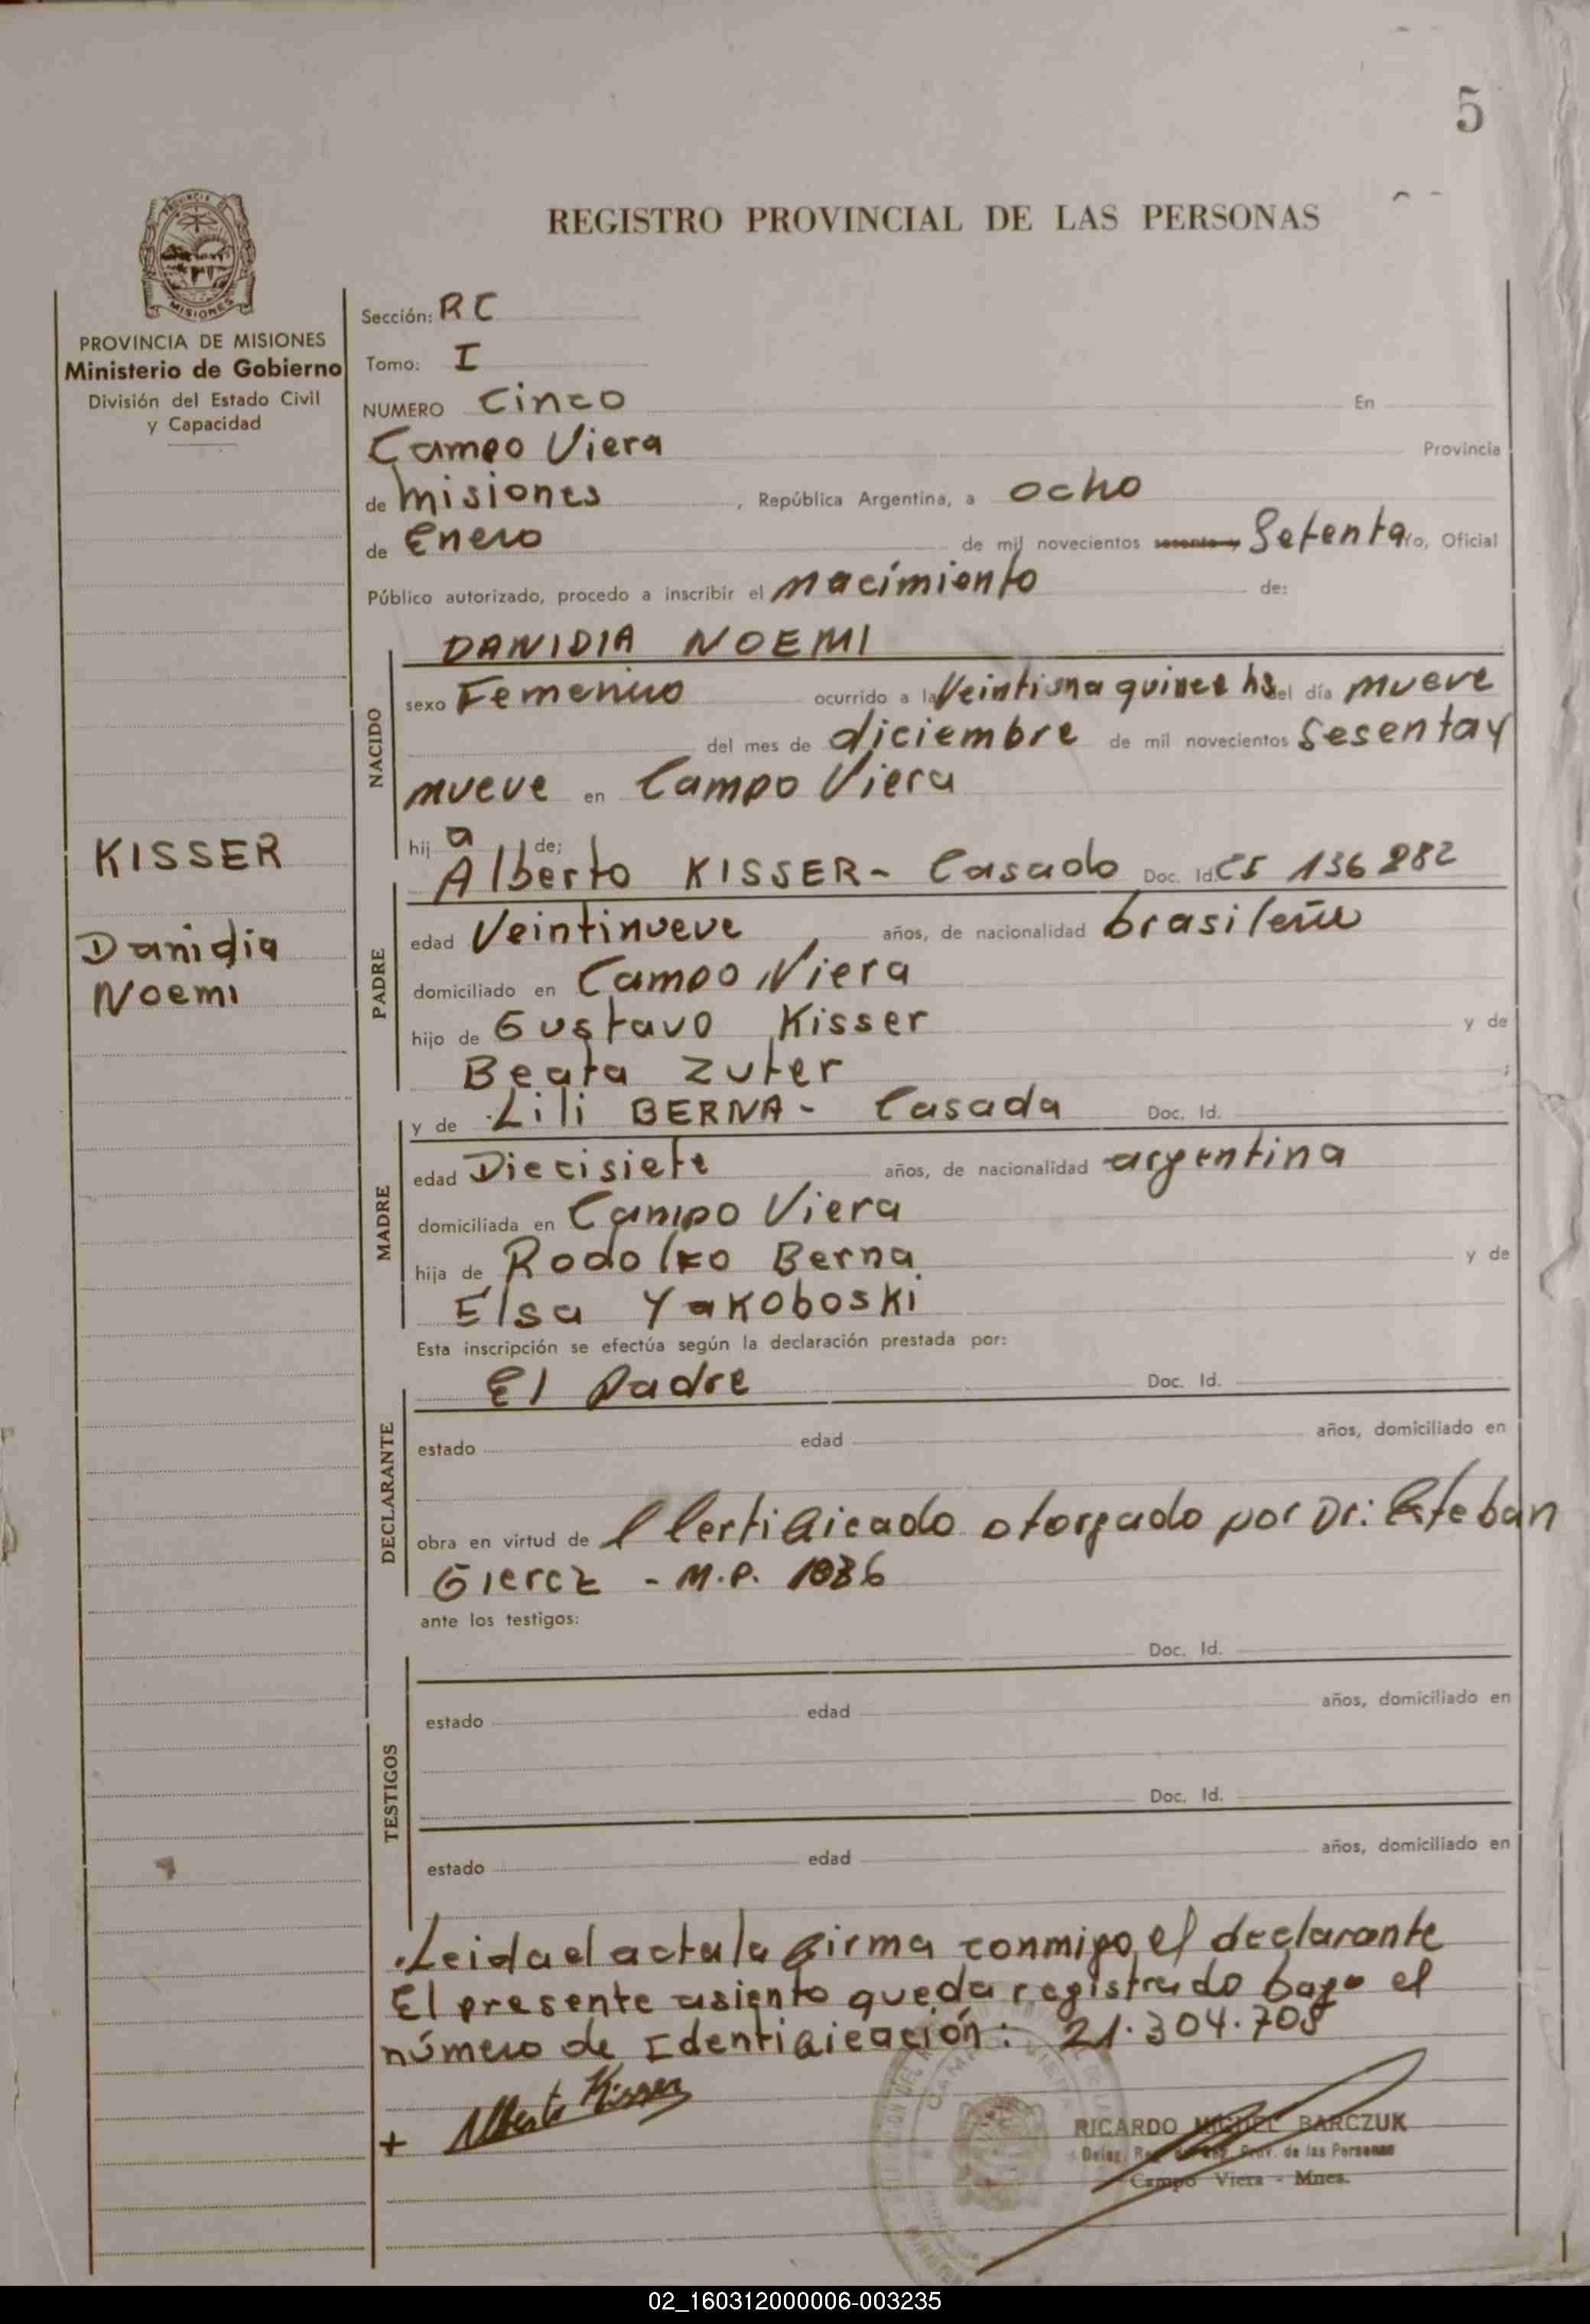 5
REGISTRO PROVINCIAL DE LAS PERSONAS
PROVINCIA DE MISIONES
Ministerio de Gobierno
División del Estado Civil
y Capacidad
Sección: RC
Tomo: I
NUMERO Cinco En
Campo Viera Provincia
de misiones, República Argentina, a ocho
de Enero de mil novecientos sesenta y Setenta Yo, Oficial
Público autorizado, procedo a inscribir el nacimiento de:
NACIDO
DANIDIA NOEMI
sexo Femenino ocurrido a la Veintiuna quince hs del día nueve
del mes de diciembre de mil novecientos Sesenta y
nueve en Campo Viera
hij a de:
KISSER
Danidia
Noemi
PADRE
Alberto KISSER - Casado Doc. Id. CI 136882
edad Veintinueve años, de nacionalidad brasileña
domiciliado en Campo Viera
hijo de Gustavo Kisser y de
Beata Zuter ;
MADRE
y de Lili BERNA - Casada Doc. Id.
edad Diecisiete años, de nacionalidad argentina
domiciliada en Campo Viera
hija de Rodolfo Berna y de
Elsa Yakoboski
Esta inscripción se efectúa según la declaración prestada por:
DECLARANTE
El Padre Doc. Id.
estado edad años, domiciliado en
obra en virtud de l Certificado otorgado por Dr: Esteban
Giercz - M.P. 1036
ante los testigos:
TESTIGOS
Doc. Id.
estado edad años, domiciliado en
Doc. Id.
estado edad años, domiciliado en
Leida el acta la firma conmigo, el declarante
El presente asiento queda registrado bajo el
número de Identificación: 21.304.708
+ Alberto Kisser
RICARDO MIGUEL BARCZUK
Deleg. Reg. Prov. de las Personas
Campo Viera - Mnes.
02_160312000006-003235